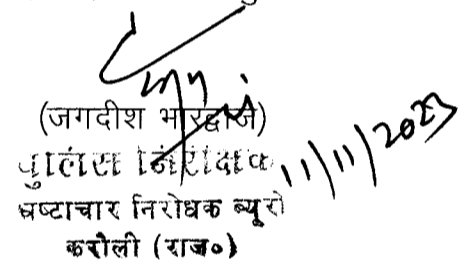 (जगदीश भारद्वाज)
पुलिस निरीक्षक
11/11/2023
भ्रष्टाचार निरोधक ब्यूरो
करौली (राज०)